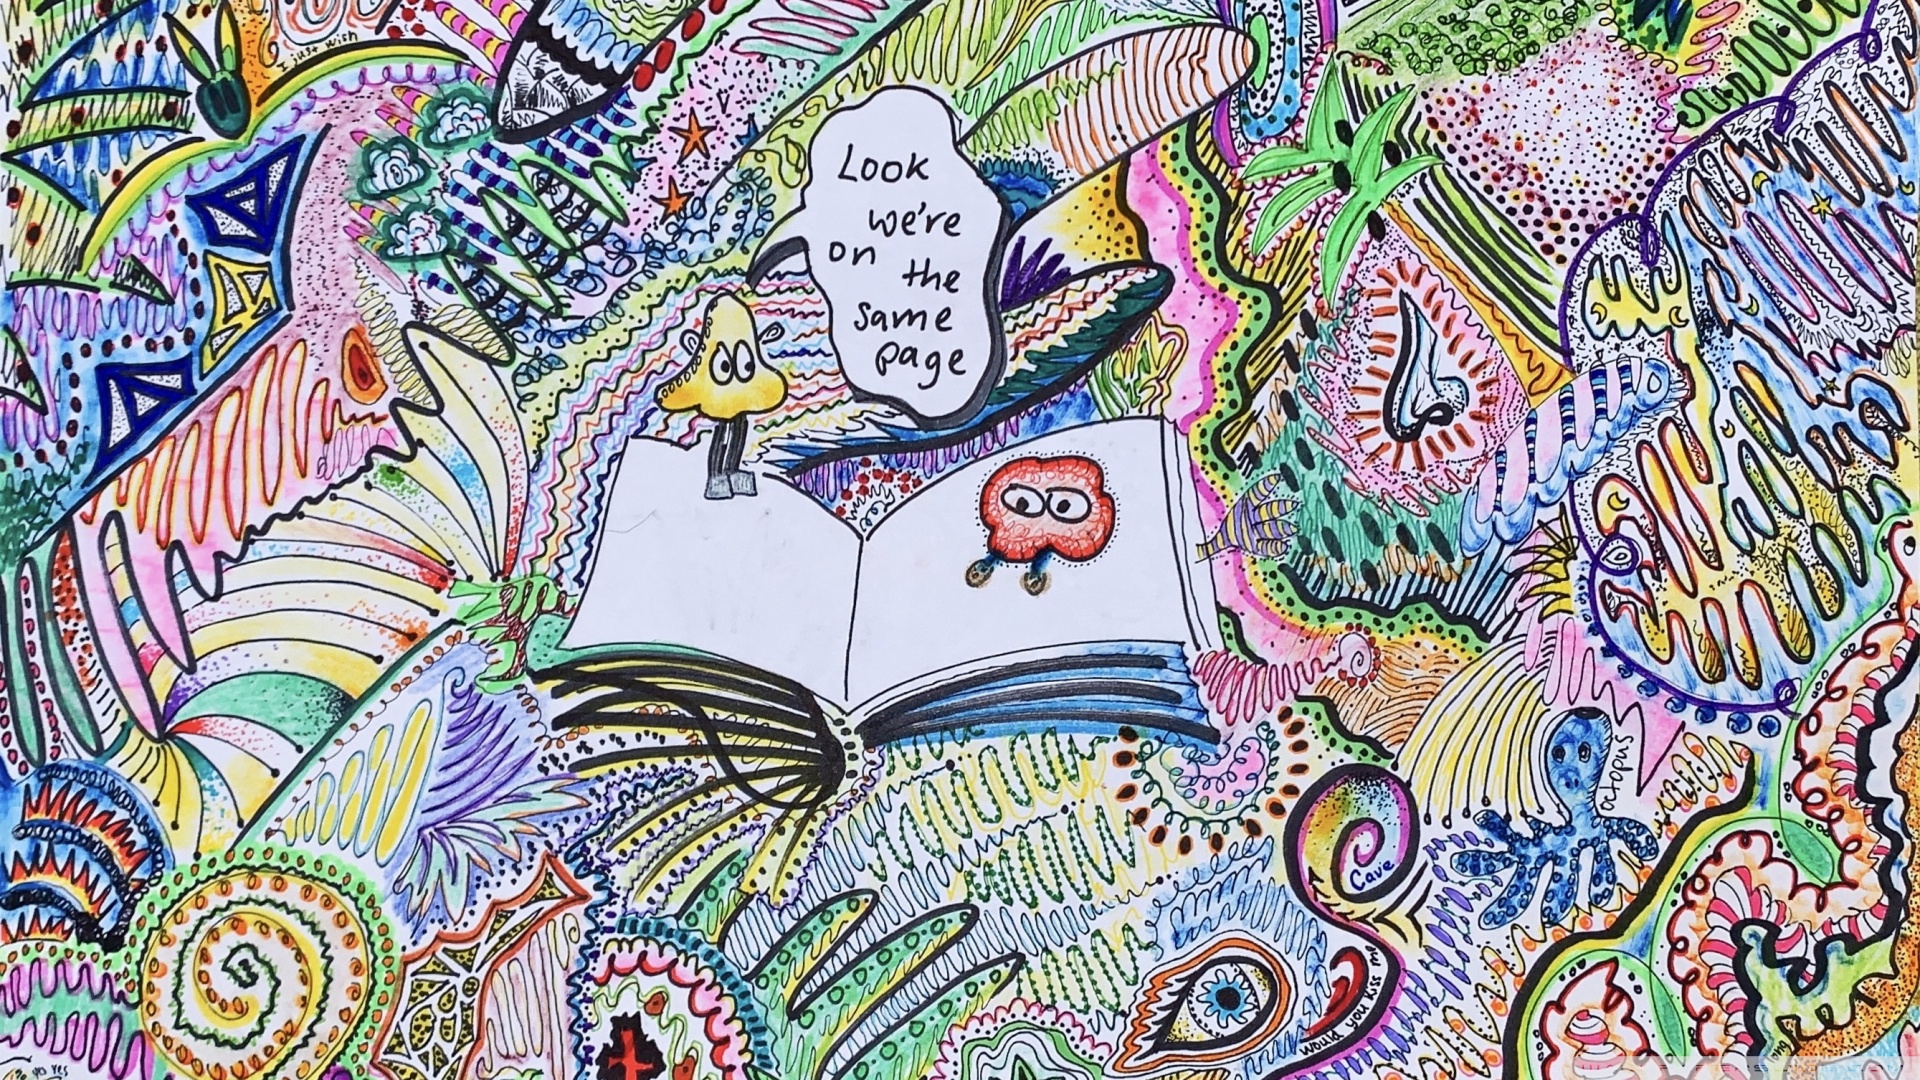 I just wish
Look
we're
on the
same
page
Cave
octopus
would you kiss me
yo yes